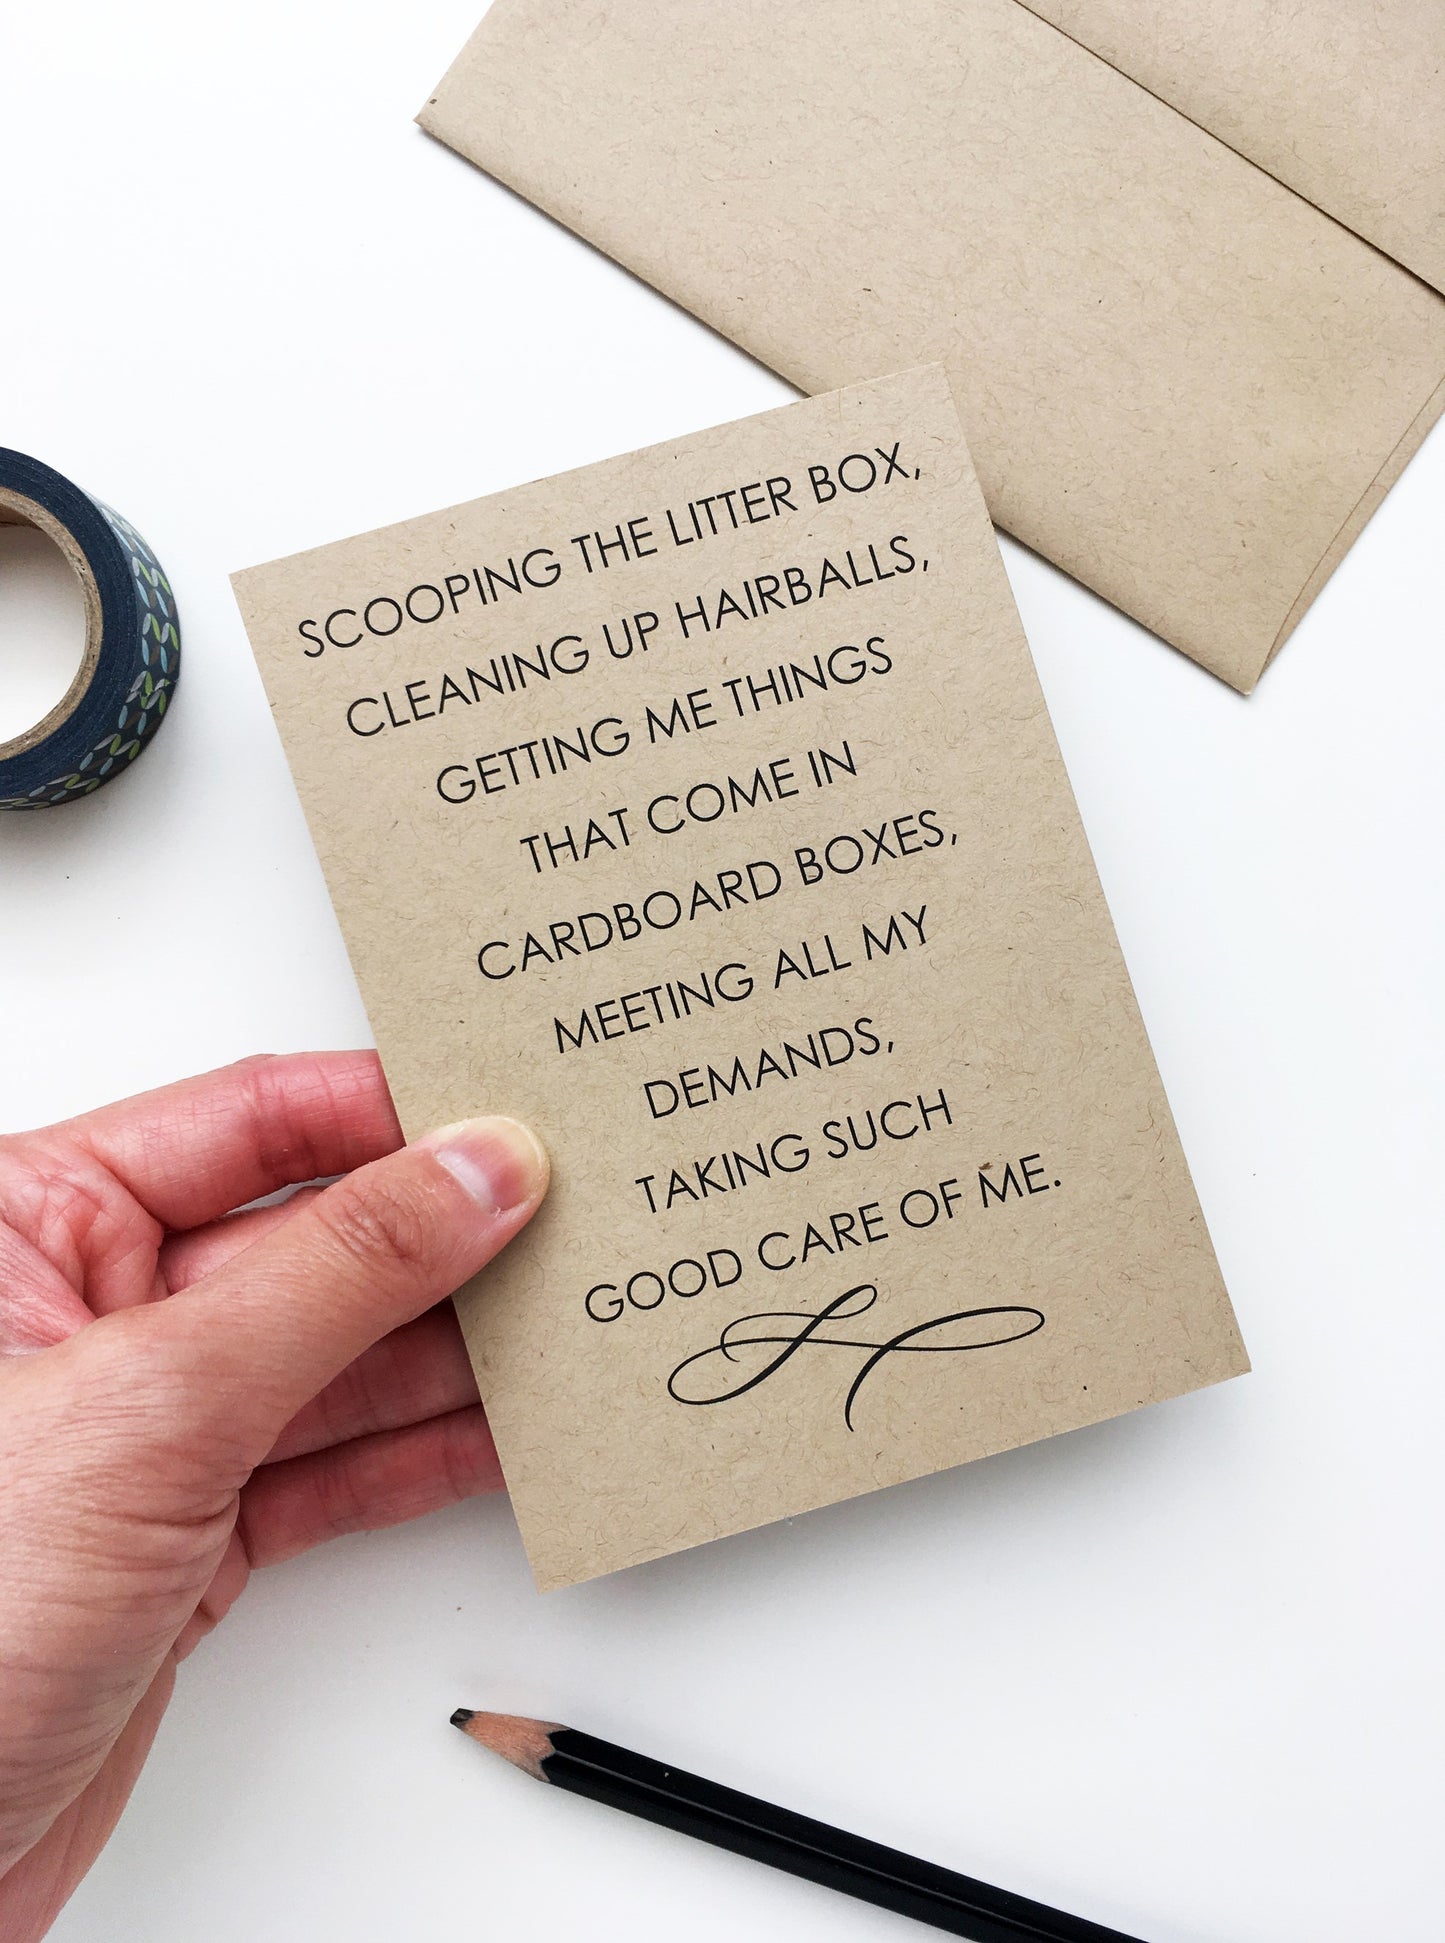 SCOOPING THE LITTER BOX,
CLEANING UP HAIRBALLS,
GETTING ME THINGS
THAT COME IN
CARDBOARD BOXES,
MEETING ALL MY
DEMANDS,
TAKING SUCH
GOOD CARE OF ME.